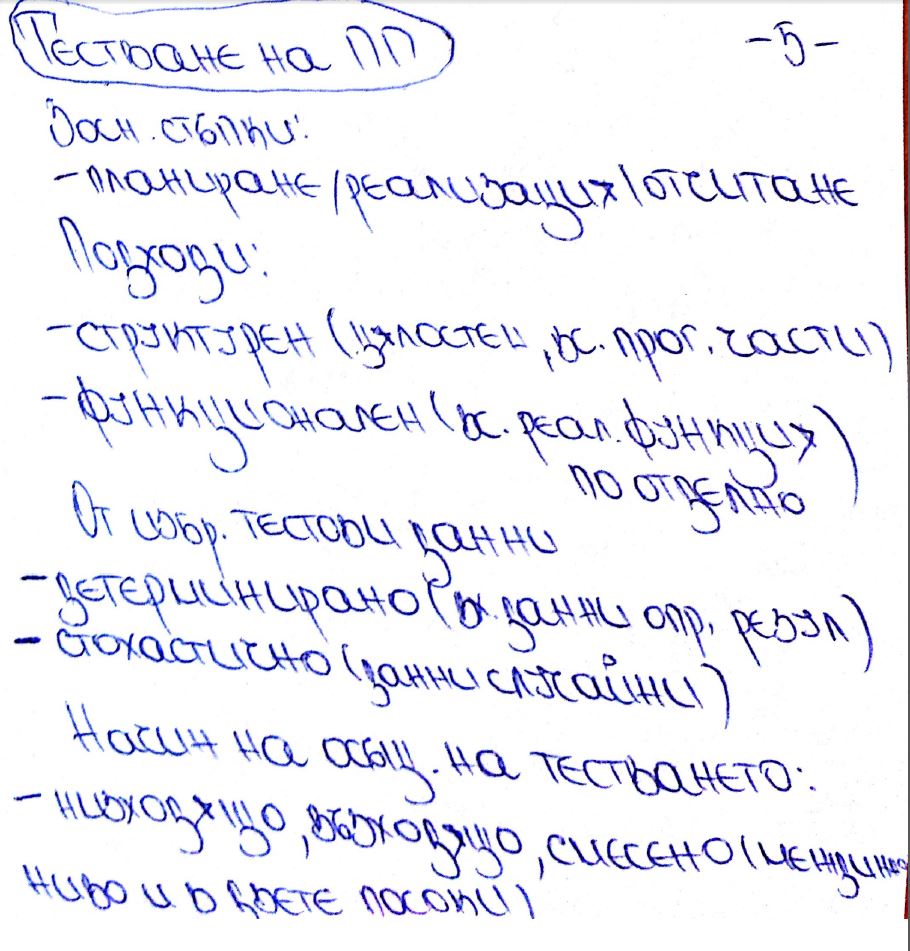 Тестване на ПП
-5-
3 осн. стъпки:
-планиране/реализация/отчитане
Подходи:
-структурен (цялостен, вс. прог. части)
-функционален (вс. реал. функция
по отделно)
От избр. тестови данни
-детерминирано (вх. данни опр. резул)
-стохастично (данни случайни)
Начин на осъщ. на тестването:
-низходящо, възходящо, смесено (междинно
ниво и в двете посоки)